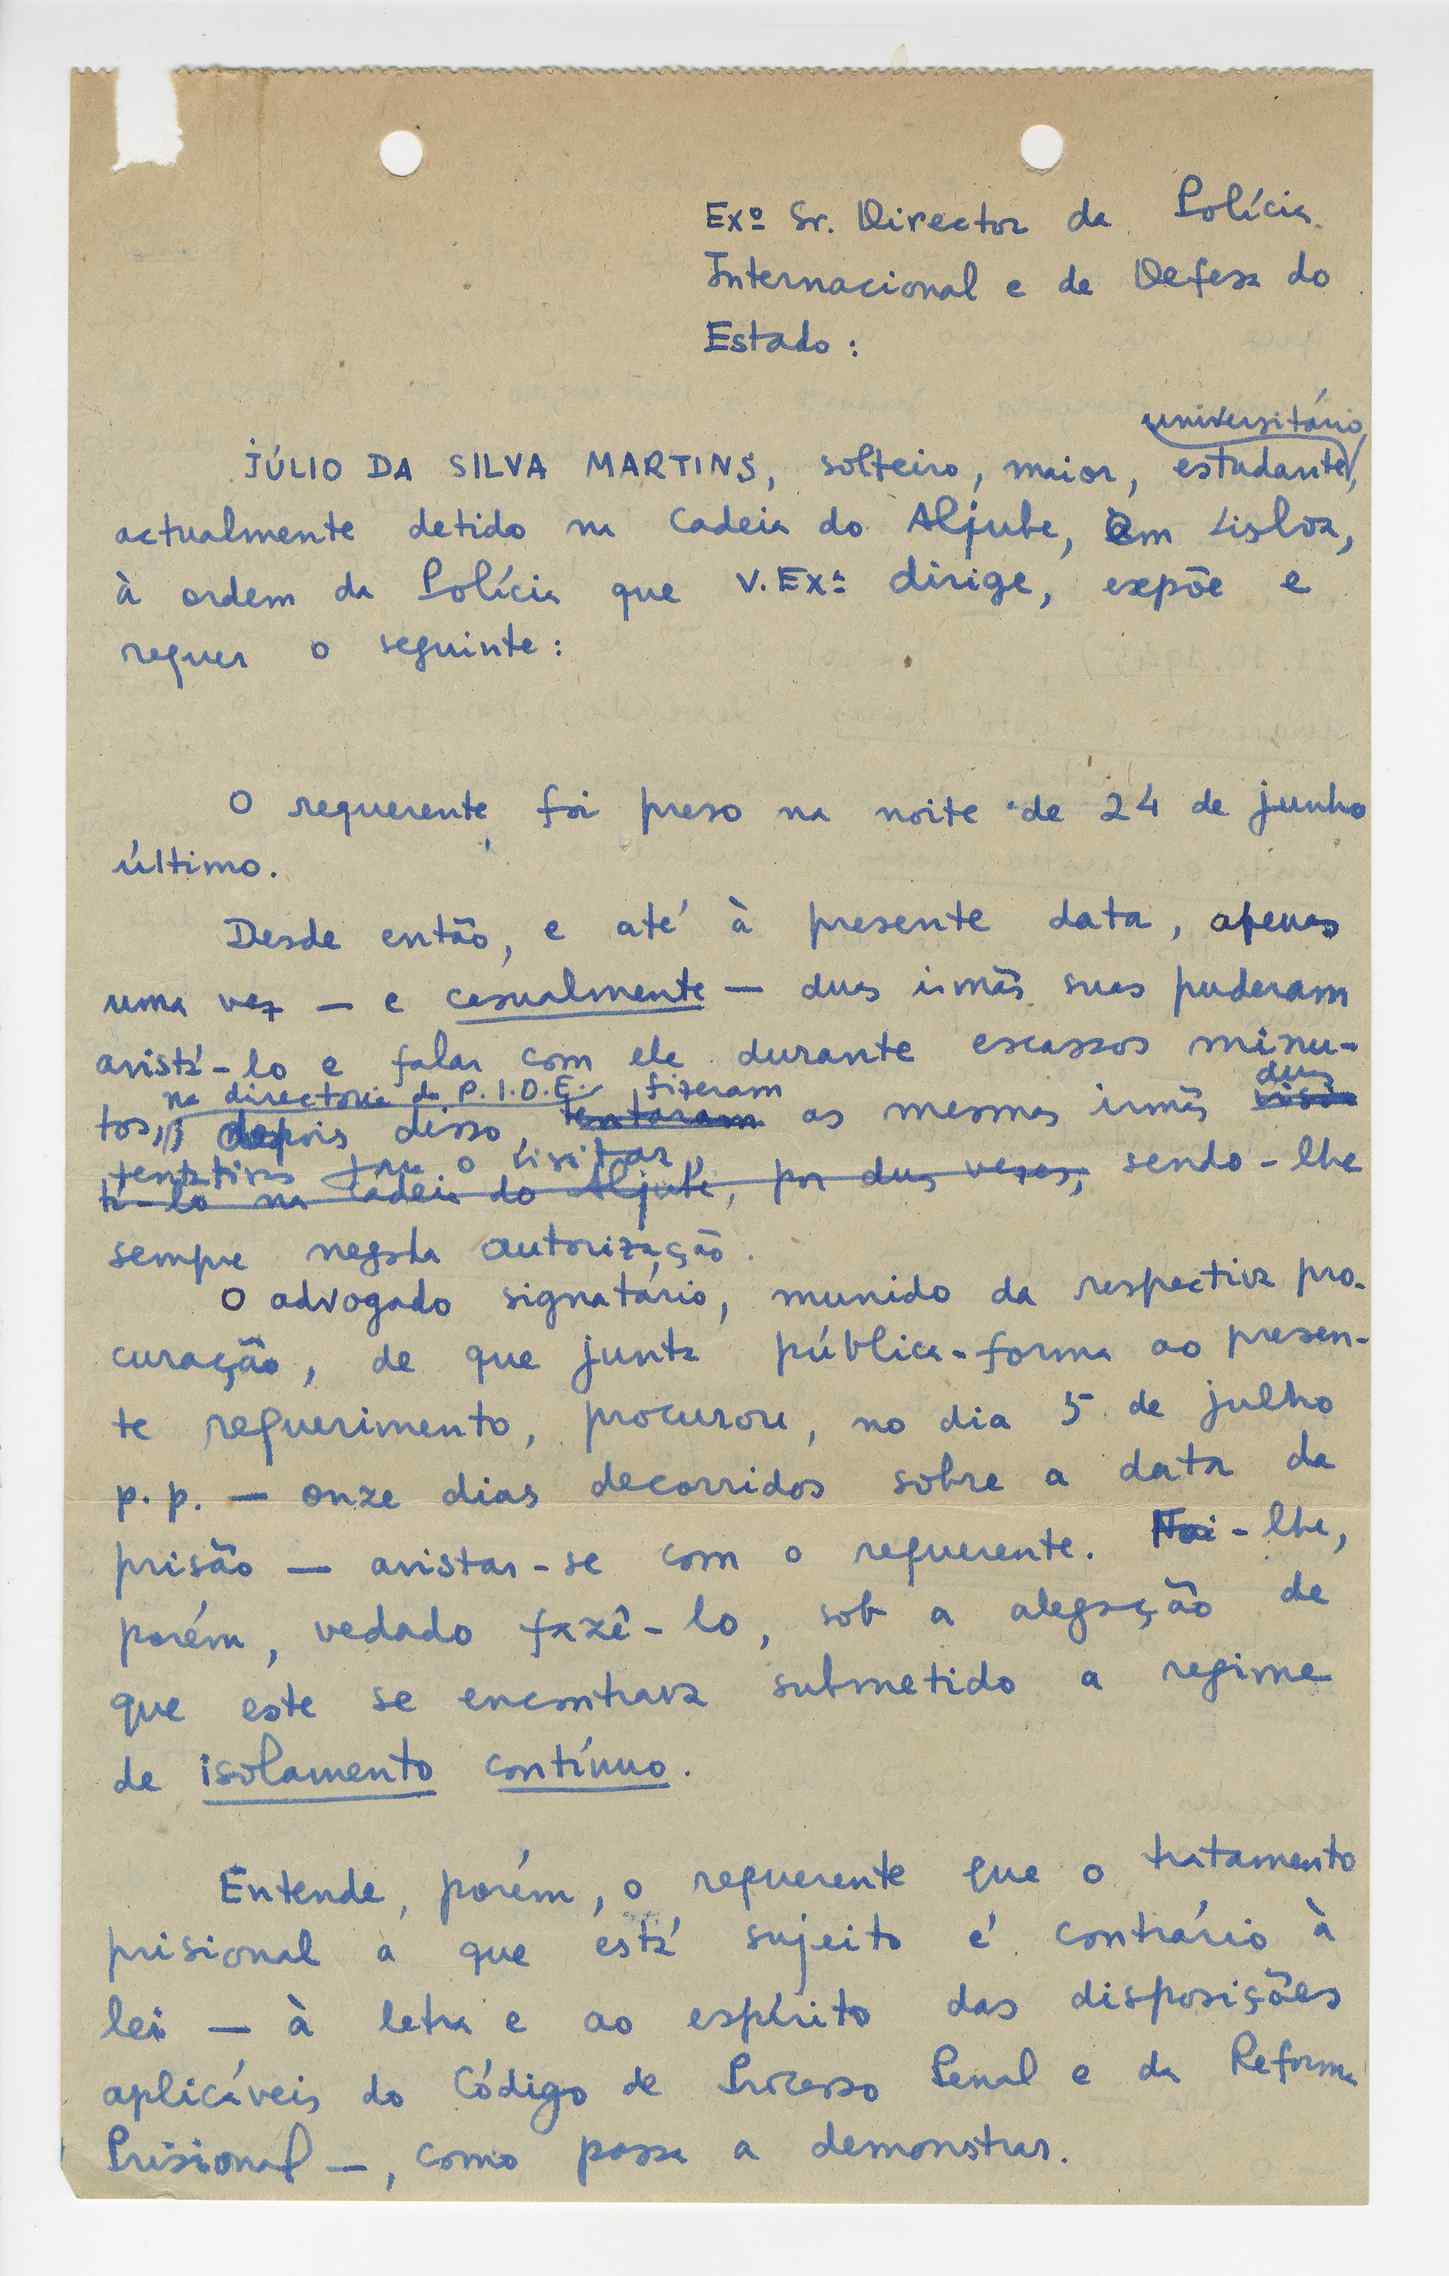 Exº Sr. Director da Polícia
Internacional e de Defesa do
Estado:
universitário,
JÚLIO DA SILVA MARTINS, solteiro, maior, estudante,
actualmente detido na Cadeia do Aljube, em Lisboa,
à ordem da Polícia que V. Exª dirige, expõe e
requer o seguinte:
O requerente foi preso na noite de 24 de junho
último.
Desde então, e até à presente data, apenas
uma vez — e casualmente — duas irmãs suas puderam
avistá-lo e falar com ele durante escassos minu-
na directoria da P.I.D.E. fizeram duas
tos, depois disso, tentaram as mesmas irmãs
tentativas para o visitar,
tá-lo na Cadeia do Aljube, por duas vezes, sendo-lhe
sempre negada autorização.
O advogado signatário, munido da respectiva pro-
curação, de que junta pública-forma ao presen-
te requerimento, procurou, no dia 5 de julho
p.p. — onze dias decorridos sobre a data da
prisão — avistar-se com o requerente. Foi-lhe,
porém, vedado fazê-lo, sob a alegação de
que este se encontrava submetido a regime
de isolamento contínuo.
Entende, porém, o requerente que o tratamento
prisional a que está sujeito é contrário à
lei — à letra e ao espírito das disposições
aplicáveis do Código de Processo Penal e da Reforma
Prisional —, como passa a demonstrar.